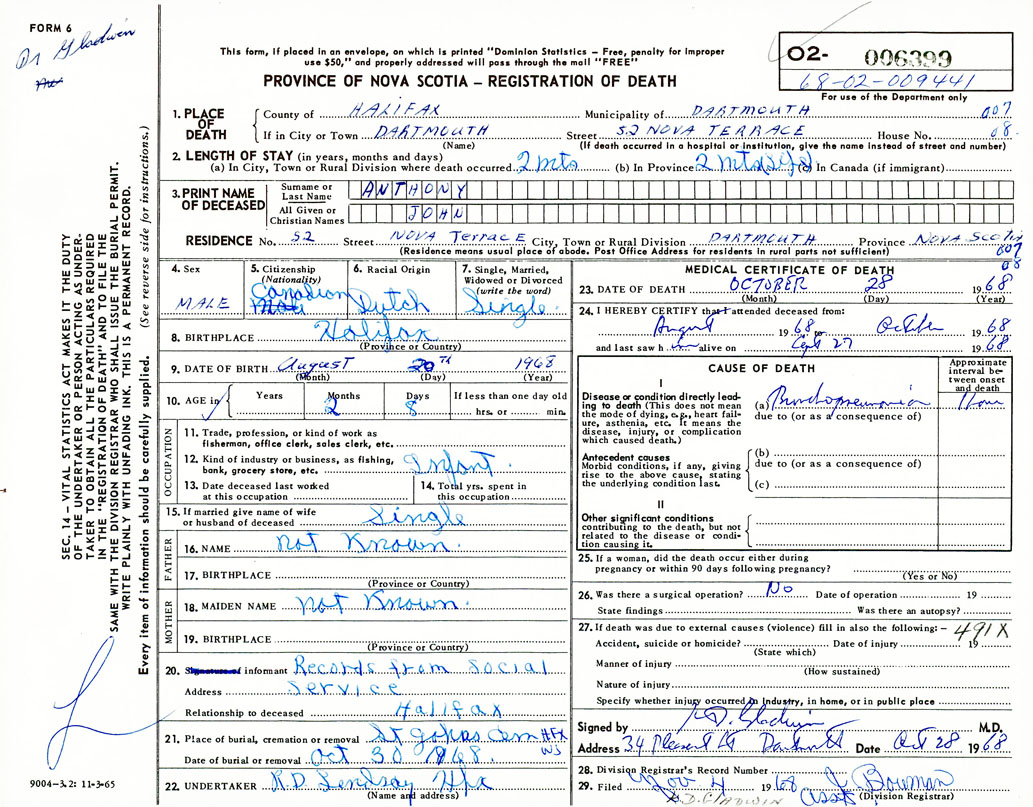 FORM 6
Dr Gladwin
This form, if placed in an envelope, on which is printed "Dominion Statistics – Free, penalty for improper
use $50," and properly addressed will pass through the mail "FREE"
PROVINCE OF NOVA SCOTIA – REGISTRATION OF DEATH
O2- 006399
68-02-009441
For use of the Department only
SEC. 14 – VITAL STATISTICS ACT MAKES IT THE DUTY
OF THE UNDERTAKER OR PERSON ACTING AS UNDER-
TAKER TO OBTAIN ALL THE PARTICULARS REQUIRED
IN THE "REGISTRATION OF DEATH" AND TO FILE THE
SAME WITH THE DIVISION REGISTRAR WHO SHALL ISSUE THE BURIAL PERMIT.
WRITE PLAINLY WITH UNFADING INK. THIS IS A PERMANENT RECORD.
Every item of information should be carefully supplied. (See reverse side for instructions.)
1. PLACE OF DEATH
County of HALIFAX Municipality of DARTMOUTH 007
If in City or Town DARTMOUTH Street 52 NOVA TERRACE House No. 08
(Name) (If death occurred in a hospital or institution, give the name instead of street and number)
2. LENGTH OF STAY (in years, months and days)
(a) In City, Town or Rural Division where death occurred 2 mts (b) In Province 2 mts (c) In Canada (if immigrant)
3. PRINT NAME OF DECEASED
Surname or Last Name ANTHONY
All Given or Christian Names JOHN
RESIDENCE No. 52 Street NOVA TerracE City, Town or Rural Division DARTMOUTH Province NOVA Scotia
(Residence means usual place of abode. Post Office Address for residents in rural parts not sufficient) 007
08
4. Sex MALE
5. Citizenship (Nationality) Canadian
6. Racial Origin Dutch
7. Single, Married, Widowed or Divorced (write the word) Single
8. BIRTHPLACE Halifax
(Province or Country)
9. DATE OF BIRTH August 20TH 1968
(Month) (Day) (Year)
10. AGE in Years Months 2 Days 8 If less than one day old hrs. or min.
OCCUPATION
11. Trade, profession, or kind of work as fisherman, office clerk, sales clerk, etc.
12. Kind of industry or business, as fishing, bank, grocery store, etc. Infant.
13. Date deceased last worked at this occupation
14. Total yrs. spent in this occupation
15. If married give name of wife or husband of deceased Single
FATHER
16. NAME not Known.
17. BIRTHPLACE
(Province or Country)
MOTHER
18. MAIDEN NAME not Known.
19. BIRTHPLACE
(Province or Country)
20. Signature of informant Records from Social
Address Service
Relationship to deceased Halifax
21. Place of burial, cremation or removal St Johns Cem HFX NS
Date of burial or removal Oct 30 1968.
22. UNDERTAKER R.D. Lindsay Hfx
(Name and address)
9004-3.2: 11-3-65
MEDICAL CERTIFICATE OF DEATH
23. DATE OF DEATH OCTOBER 28 1968
(Month) (Day) (Year)
24. I HEREBY CERTIFY that I attended deceased from:
August 1968 to October 1968
and last saw h im alive on Sept 27 1968
CAUSE OF DEATH
Approximate interval between onset and death
I
Disease or condition directly lead-
ing to death (This does not mean
the mode of dying, e.g., heart fail-
ure, asthenia, etc. It means the
disease, injury, or complication
which caused death.)
(a) Bronchopneumonia 1 hour
due to (or as a consequence of)
Antecedent causes
Morbid conditions, if any, giving
rise to the above cause, stating
the underlying condition last.
(b)
due to (or as a consequence of)
(c)
II
Other significant conditions
contributing to the death, but not
related to the disease or condi-
tion causing it.
25. If a woman, did the death occur either during
pregnancy or within 90 days following pregnancy?
(Yes or No)
26. Was there a surgical operation? No Date of operation 19
State findings Was there an autopsy?
27. If death was due to external causes (violence) fill in also the following: – 491X
Accident, suicide or homicide? Date of injury 19
(State which)
Manner of injury
(How sustained)
Nature of injury
Specify whether injury occurred in industry, in home, or in public place
Signed by D. Gladwin M.D.
Address 34 Pleasant St Dartmouth Date Oct 28 1968
28. Division Registrar's Record Number
29. Filed Nov 4 1968 Bowman
D. GLADWIN Asst (Division Registrar)